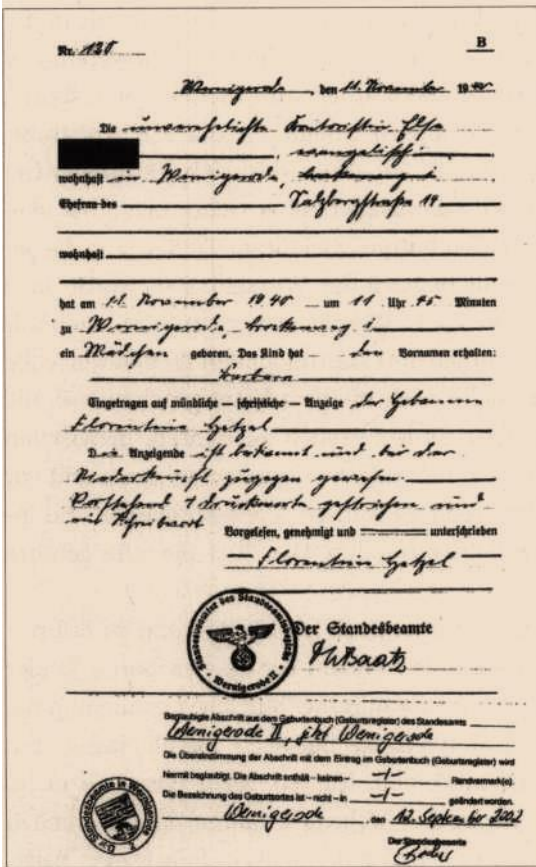 Nr. 120
B
Wernigerode, den 11. November 1940
Die unverehelichte Kontoristin Else
evangelisch
wohnhaft in Wernigerode,
Ehefrau des Salzbergstraße
wohnhaft
hat am 11. November 1940 um 11 Uhr 45 Minuten
zu Wernigerode,
ein Mädchen geboren. Das Kind hat den Vornamen erhalten:
Barbara
Eingetragen auf mündliche – schriftliche – Anzeige der Hebamme
Florentine
Die Anzeigende ist bekannt und bei der
Niederkunft zugegen gewesen.
Vorstehend 1 Druckworte gestrichen und
ein Schreibwort
Vorgelesen, genehmigt und unterschrieben
Florentine
Der Standesbeamte
Standesbeamter des Standesamtsbezirks
Wernigerode II
Beglaubigte Abschrift aus dem Geburtenbuch (Geburtsregister) des Standesamts
Wernigerode II, jetzt Wernigerode
Die Übereinstimmung der Abschrift mit dem Eintrag im Geburtenbuch (Geburtsregister) wird
hiermit beglaubigt. Die Abschrift enthält – keinen – -/- Randvermerk(e).
Die Bezeichnung des Geburtsortes ist – nicht – in -/- geändert worden.
Wernigerode den 12. September 2002
Der Standesbeamte